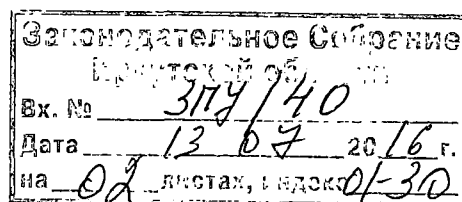 Законодательное Собрание
Иркутской области
Вх. № ЗПУ/40
Дата 13 07 2016 г.
на 02 листах, индекс 01-30